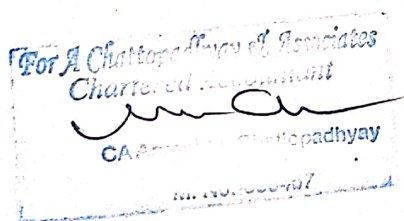 For A Chattopadhyay & Associates
Chartered Accountant
CA Chattopadhyay
M. No.